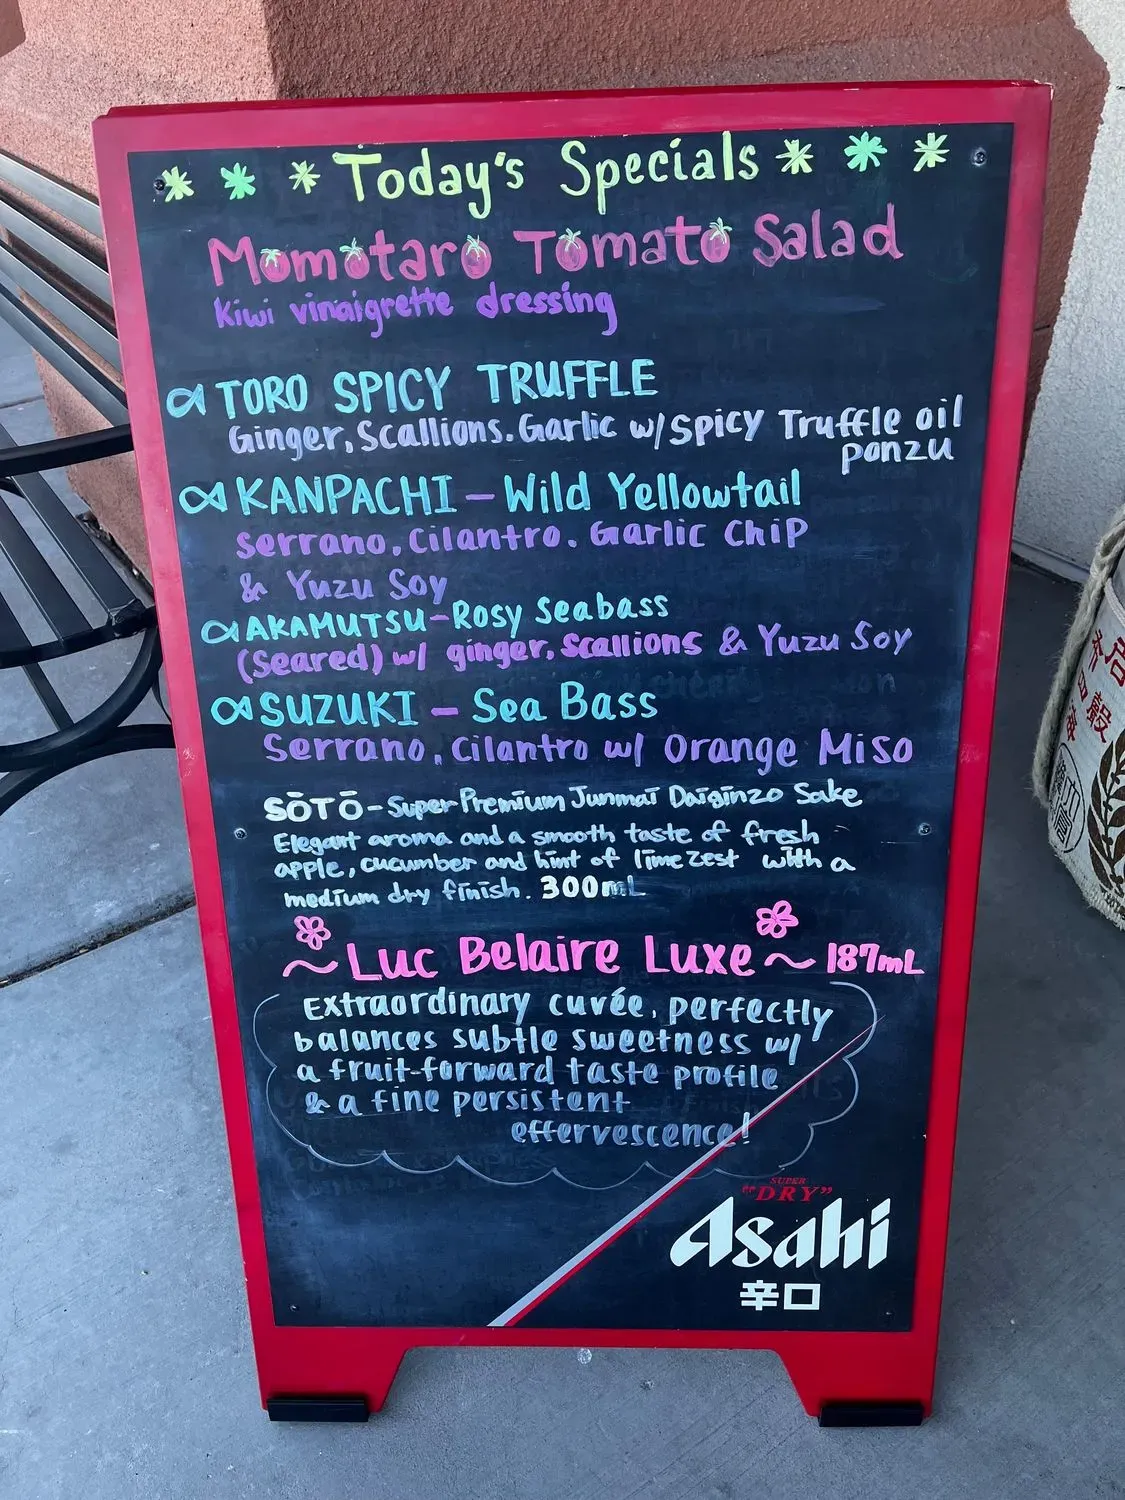 Today's Specials
Momotaro Tomato Salad
Kiwi vinaigrette dressing
TORO SPICY TRUFFLE
Ginger, Scallions. Garlic w/ Spicy Truffle oil
ponzu
KANPACHI - Wild Yellowtail
Serrano, Cilantro. Garlic Chip
& Yuzu Soy
AKAMUTSU - Rosy Seabass
(Seared) w/ ginger, Scallions & Yuzu Soy
SUZUKI - Sea Bass
Serrano, Cilantro w/ Orange Miso
SŌTŌ - Super Premium Junmai Daiginzo Sake
Elegant aroma and a smooth taste of fresh
apple, cucumber and hint of lime zest with a
medium dry finish. 300mL
~ Luc Belaire Luxe ~ 187mL
Extraordinary cuvée, perfectly
balances subtle sweetness w/
a fruit-forward taste profile
& a fine persistent
effervescence!
SUPER
"DRY"
Asahi
辛口